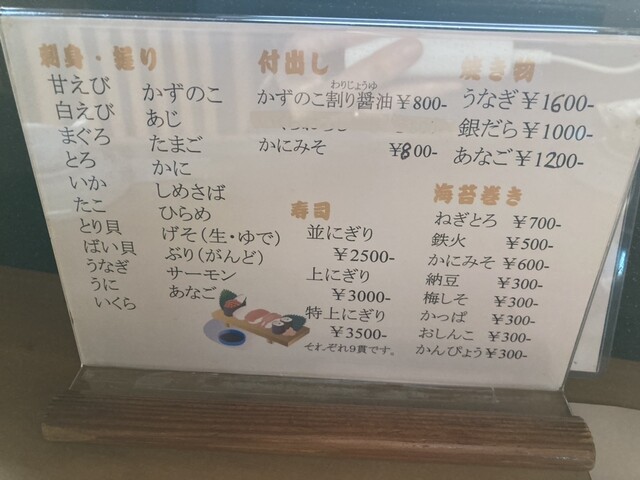 刺身・握り
甘えび
白えび
まぐろ
とろ
いか
たこ
とり貝
ばい貝
うなぎ
うに
いくら
かずのこ
あじ
たまご
かに
しめさば
ひらめ
げそ(生・ゆで)
ぶり(がんど)
サーモン
あなご
付出し
わりじょうゆ
かずのこ割り醤油 ¥800-
かにみそ ¥800-
寿司
並にぎり
¥2500-
上にぎり
¥3000-
特上にぎり
¥3500-
それぞれ9貫です。
焼き物
うなぎ ¥1600-
銀だら ¥1000-
あなご ¥1200-
海苔巻き
ねぎとろ ¥700-
鉄火 ¥500-
かにみそ ¥600-
納豆 ¥300-
梅しそ ¥300-
かっぱ ¥300-
おしんこ ¥300-
かんぴょう ¥300-